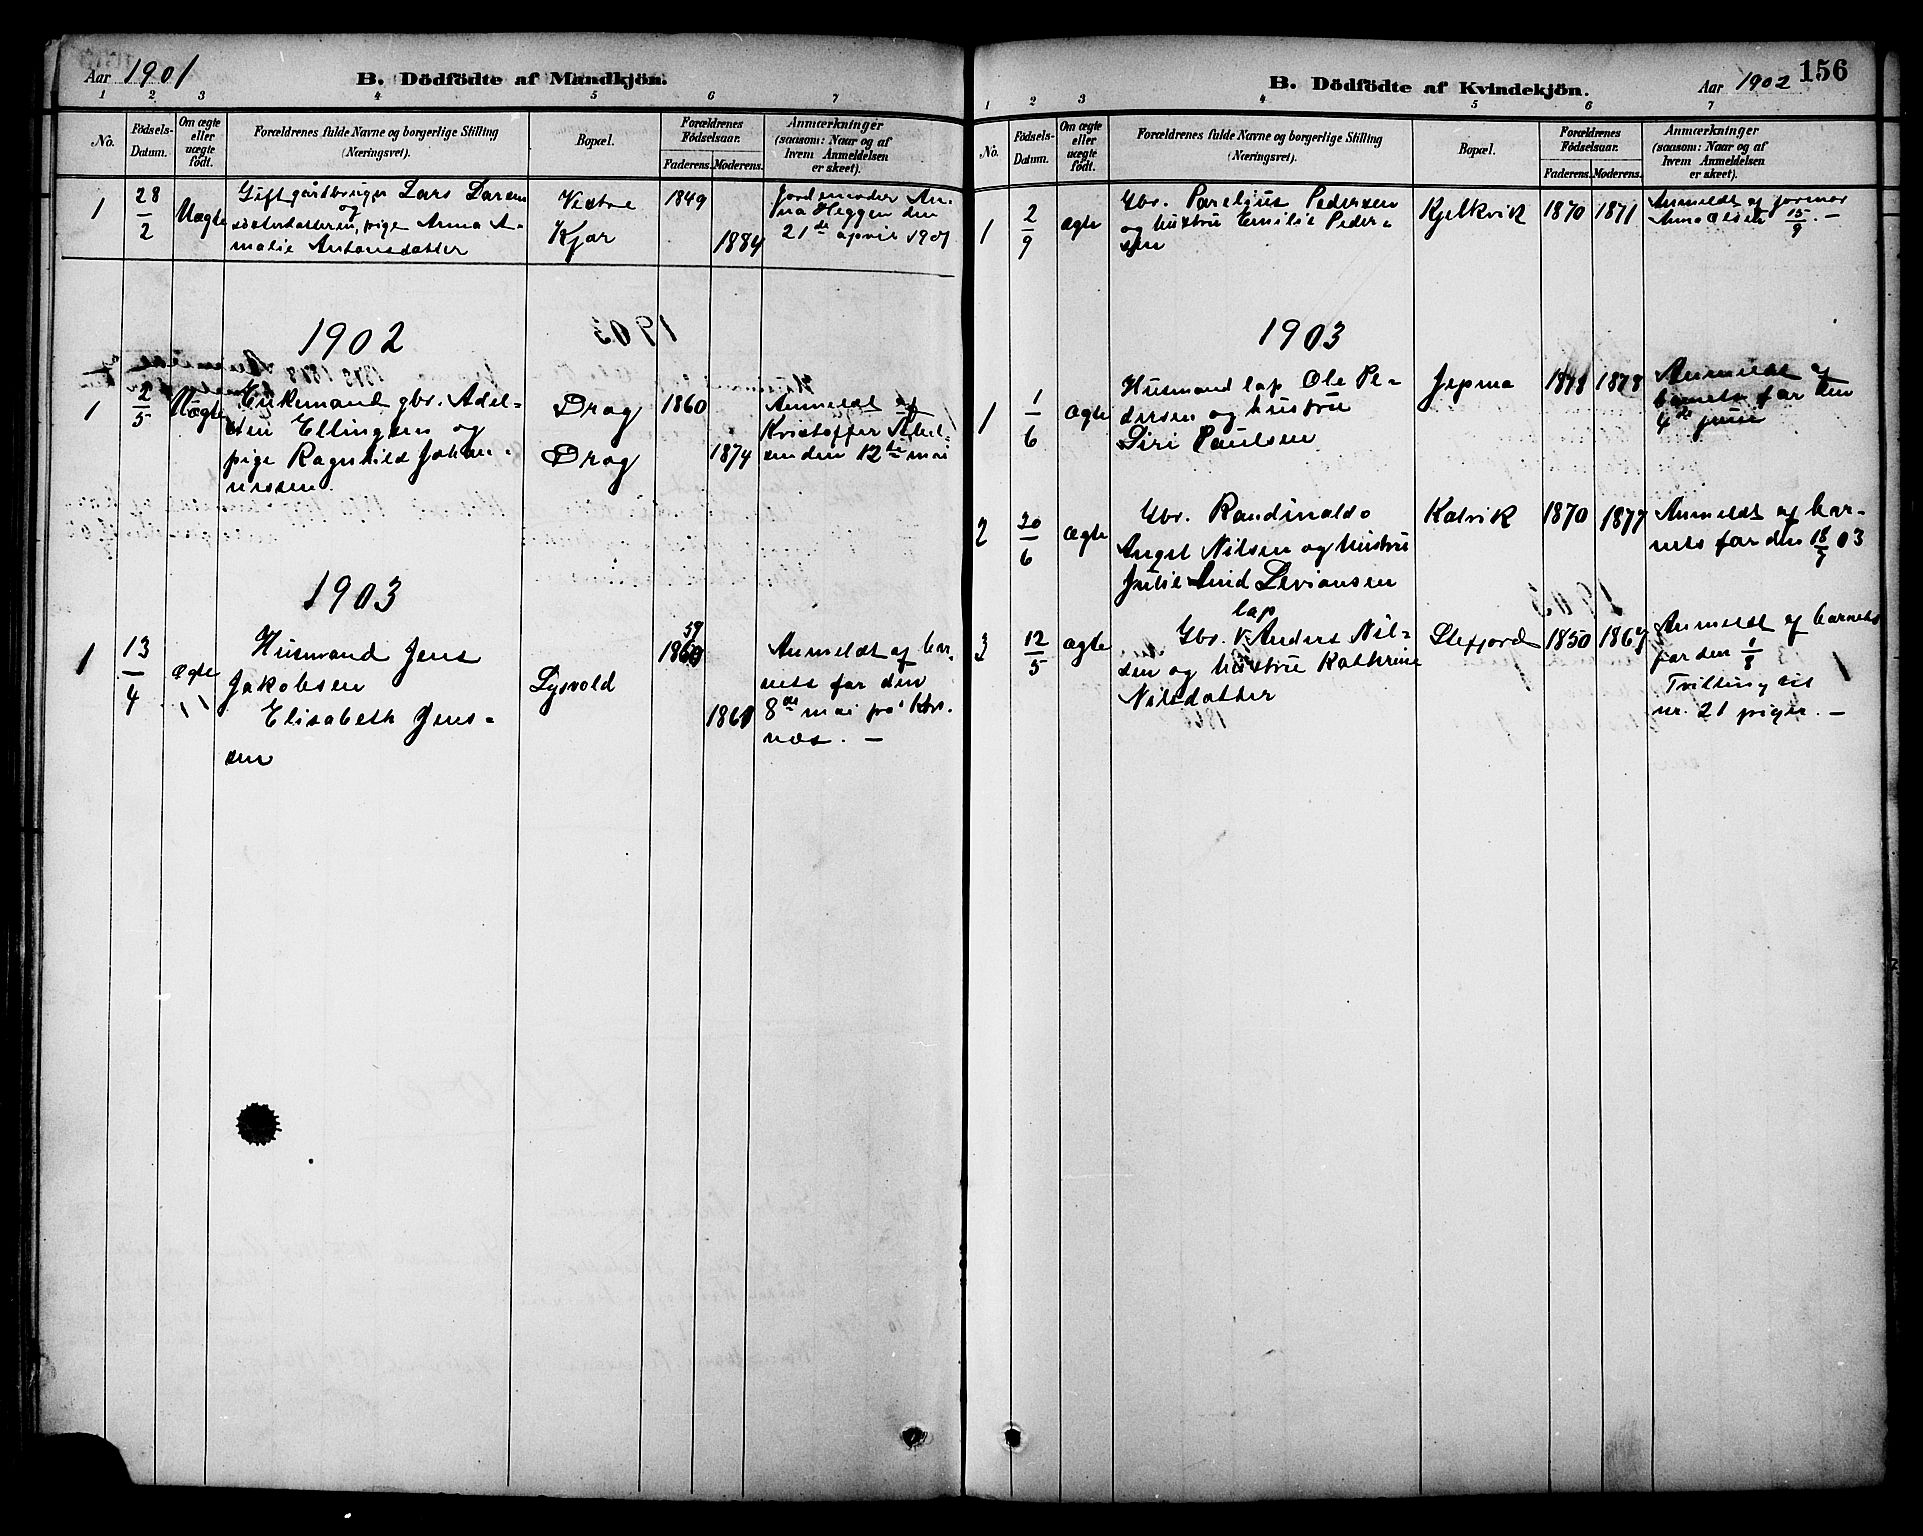 Aar 1901
B. Dödfödte af Mandkjön.
1 2 3 4 5 6 7
No.
Födsels-Datum.
Om ægte eller uægte födt.
Forældrenes fulde Navne og borgerlige Stilling (Næringsvei).
Bopæl.
Forældrenes Födselsaar.
Faderens. Moderens.
Anmærkninger (saasom: Naar og af hvem Anmeldelsen er skeet).
1 28/2 Uægte
Gift gårdbruger Lars Laren
og
søsterdatteren, pige Anna A-
malie Antonsdatter
Vestre
Kjær
1849
1884
Jordemoder An-
na Heggen den
21de april 1901
1902
1 2/5 Uægte
Enkemand gbr. Adel-
sten Ellingsen og
pige Ragnhild Johan-
nessen.
Drag
Drag
1860
1874
Anmeldt af
Kristoffer Abel-
sen den 12te mai
1903
1 13/4 Ægte
Husmand Jens
Jakobsen
Elisabeth Jens-
sen
Lysvold
59
1860
1861
Anmeldt af bar-
nets far den
8de mai på Kor-
næs. —
B. Dödfödte af Kvindekjön.
Aar 1902
156
1 2 3 4 5 6 7
No.
Födsels-Datum.
Om ægte eller uægte födt.
Forældrenes fulde Navne og borgerlige Stilling (Næringsvei).
Bopæl.
Forældrenes Födselsaar.
Faderens. Moderens.
Anmærkninger (saasom: Naar og af hvem Anmeldelsen er skeet).
1 2/9 Ægte
Gbr. Pareljus Pedersen
og hustru Emilie Peder-
sen
Kjelkvik
1870 1871
Anmeldt af jormor
Anna Olsen 15/9. —
1903
1 1/6 Ægte
Husmand lap Ole Pe-
dersen og hustru
Siri Paulsen
Jepma
1878 1878
Anmeldt af
barnets far den
4de juni
2 20/6 Ægte
Gbr. Randinaldo
Angel Nilsen og hustru
Julie Lind Leviansen
Kalvik
1870 1877
Anmeldt af bar-
nets far den 18/7 03
3 12/5 Ægte
lap
Gbr. Anders Nil-
sen og hustru Kathrine
Nilsdatter
Stefjord
1850 1867
Anmeldt af barnets
far den 1/8
Tvilling til
nr. 21 piger. —